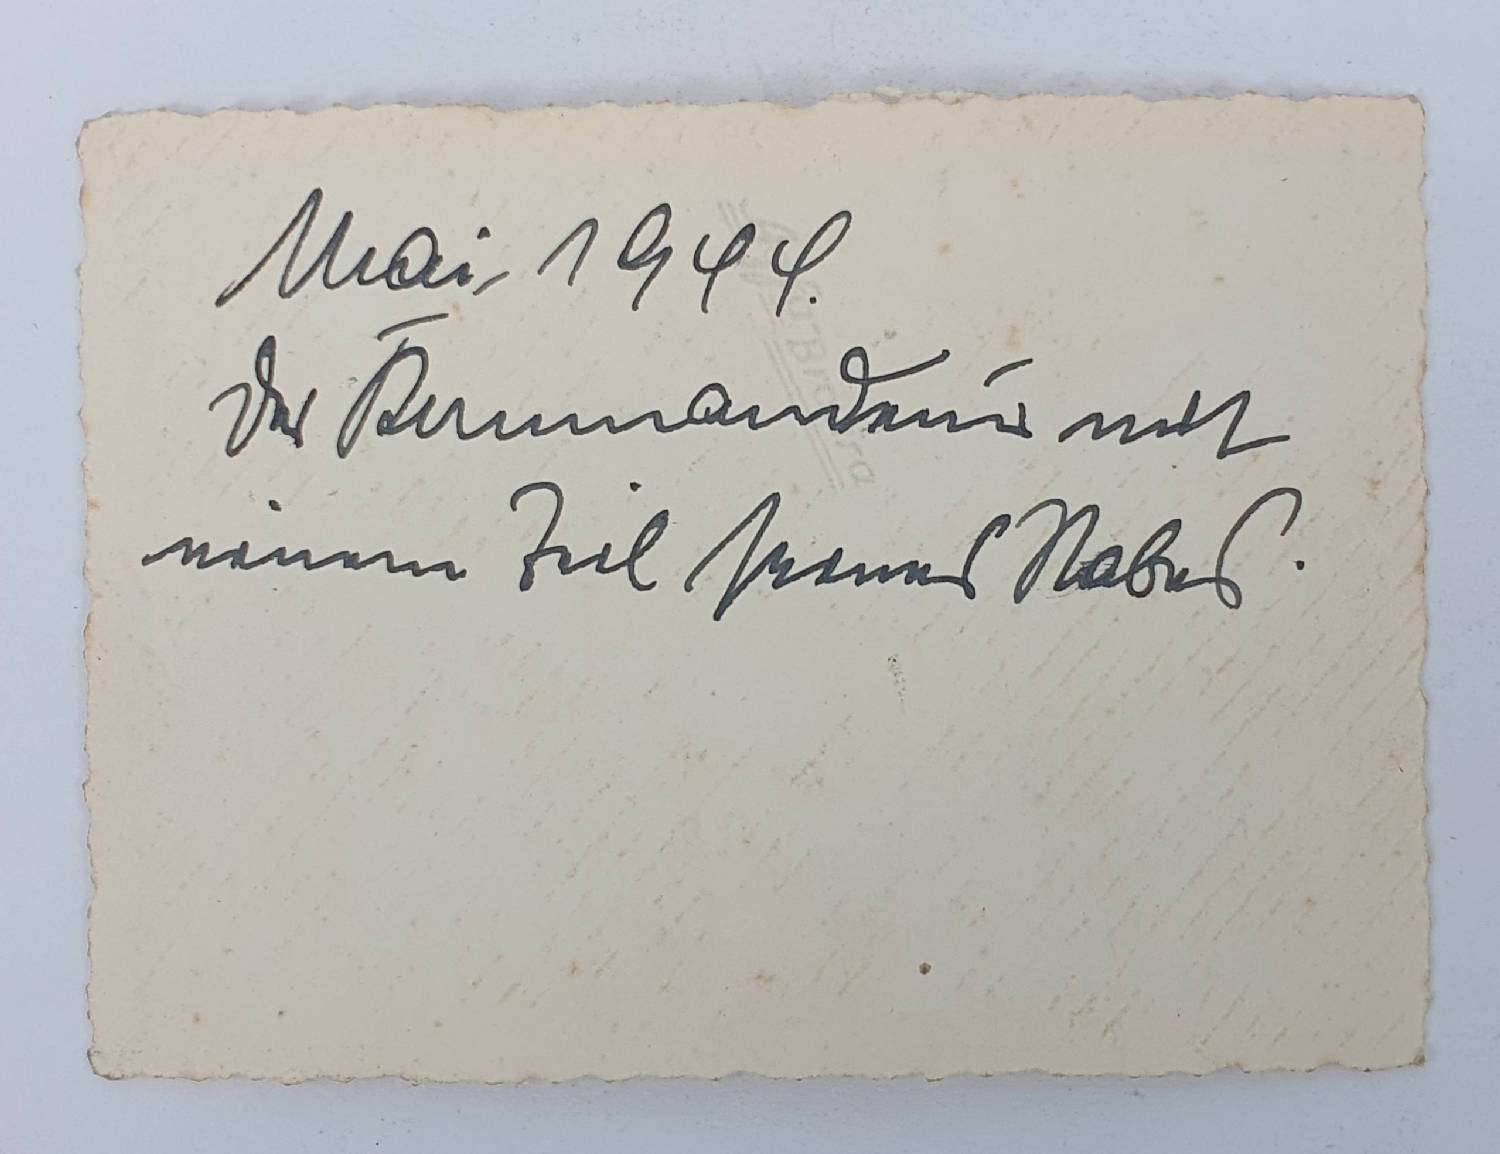 Mai, 1944.
Der Kommandeur mit
einem Teil seines Stabes.